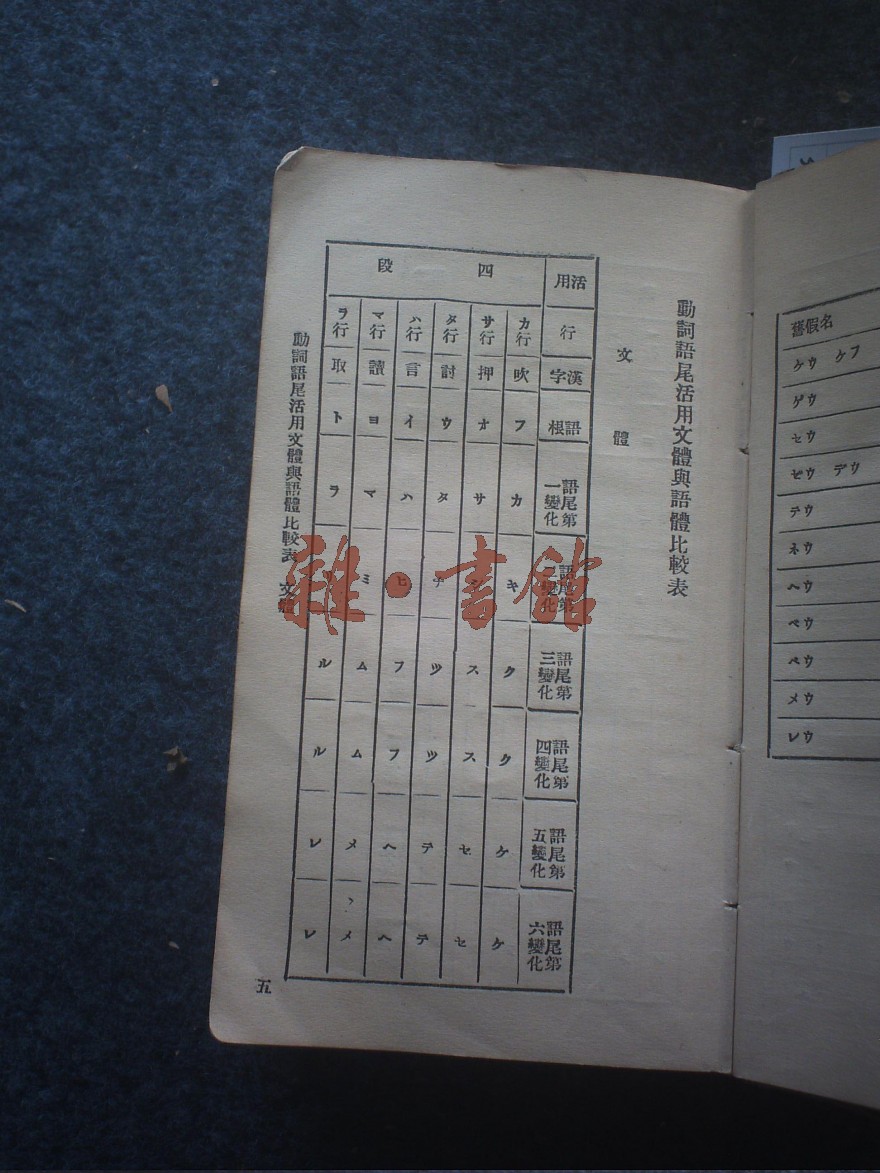 舊假名
ケウ ケフ
ゲウ
セウ
ゼウ デウ
テウ
ネウ
ヘウ
ベウ
ペウ
メウ
レウ
動詞語尾活用文體與語體比較表
文體
活用 四段
行 カ行 サ行 タ行 ハ行 マ行 ラ行
漢字 吹 押 討 言 讀 取
語根 フ オ ウ イ ヨ ト
語尾第一變化 カ サ タ ハ マ ラ
語尾第二變化 キ シ チ ヒ ミ
語尾第三變化 ク ス ツ フ ム ル
語尾第四變化 ク ス ツ フ ム ル
語尾第五變化 ケ セ テ ヘ メ レ
語尾第六變化 ケ セ テ ヘ メ レ
動詞語尾活用文體與語體比較表 文體
五
雜·書館